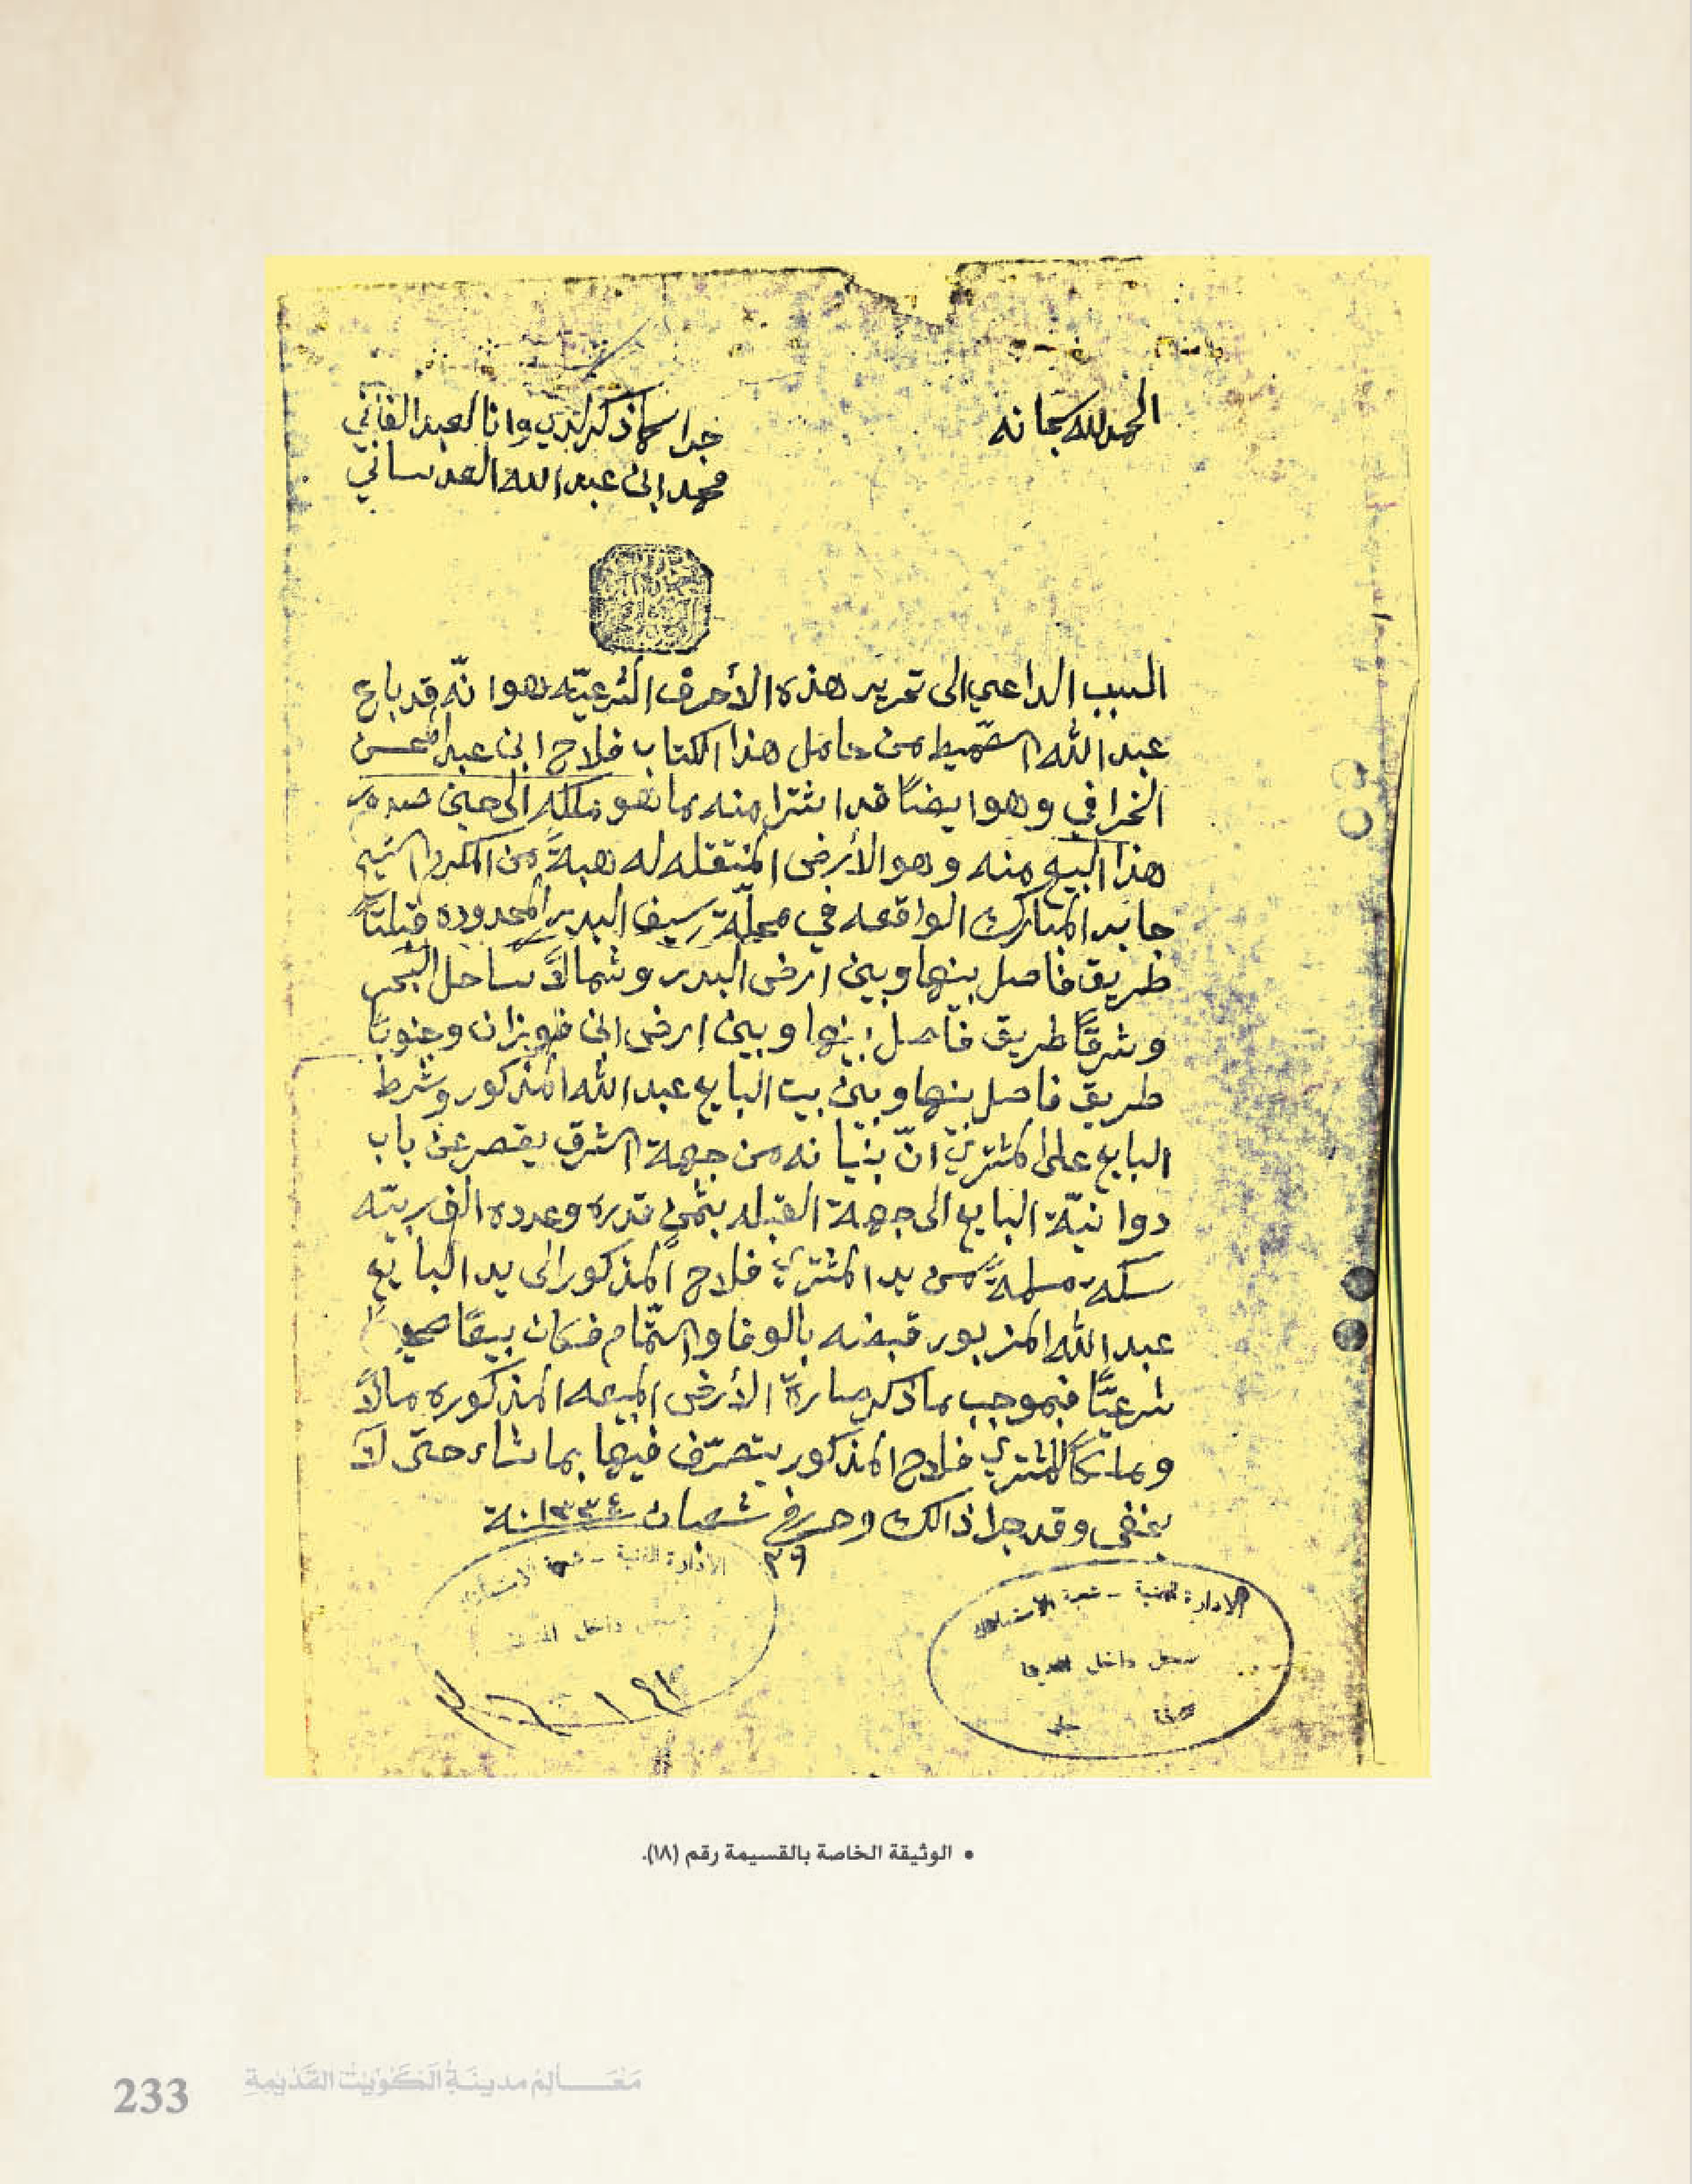 الحمد لله سبحانه
جرا كما ذكر لدي وانا العبد الفاني
محمد ابن عبد الله العدساني
السبب الداعي الى تحرير هذه الأحرف الشرعيّه هو انّه قد باع
عبد الله الصّميط من حامل هذا الكتاب فلاح ابن عبد المحسن
الخرافي وهو ايضاً قد اشترا منه ما هو ملكه الى حين صدور
هذا البيع منه وهو الأرض المنتقله له هبةً من المكرم الشيخ
جابر المبارك الواقعه في محلّة سيف البدر المحدوده قبلتاً
طريق فاصل بينها وبين ارض البدر وشمالاً ساحل البحر
وشرقاً طريق فاصل بينها وبين ارض ابن فويزان وجنوباً
طريق فاصل بينها وبين بيت البايع عبد الله المذكور وشرط
البايع على المشتري انّ بنيانه من جهة الشرق يقصر عن باب
دوانيّة البايع الى جهة القبله بثمن قدره وعدده الف ربيّه
سكه مسلمةً من يد المشتري فلاح المذكور الى يد البايع
عبد الله المزبور قبضه بالوفا والتّمام فكان بيعاً صحيحاً
شرعيّاً فبموجب ما ذكر صارة الأرض المبيعه المذكوره مالاً
وملكاً للمشتري فلاح المذكور يتصرّف فيها بما شاء حتى لا
يخفى وقد جرا ذالك وحرر في شعبان ١٣٣٤نة
٢٩
الادارة الفنية - شعبة الاستملاك
سجل داخل المدينة
الادارة الفنية - شعبة الاستملاك
سجل داخل
• الوثيقة الخاصة بالقسيمة رقم (١٨).
233 مَعَالِمُ مدينَةِ الكُوَيْت القَدْيمةِ